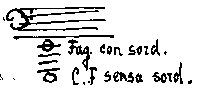 Fag. con sord.
C.F sensa sord.